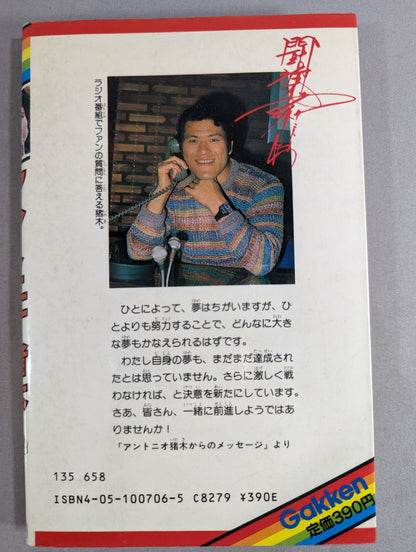 闘魂
ラジオ番組でファンの質問に答える猪木。
ひとによって、夢はちがいますが、ひ
とよりも努力することで、どんなに大き
な夢もかなえられるはずです。
わたし自身の夢も、まだまだ達成され
たとは思っていません。さらに激しく戦
わなければ、と決意を新たにしています。
さあ、皆さん、一緒に前進しようではあ
りませんか!
「アントニオ猪木からのメッセージ」より
135 658
ISBN4-05-100706-5 C8279 ¥390E
Gakken
定価390円